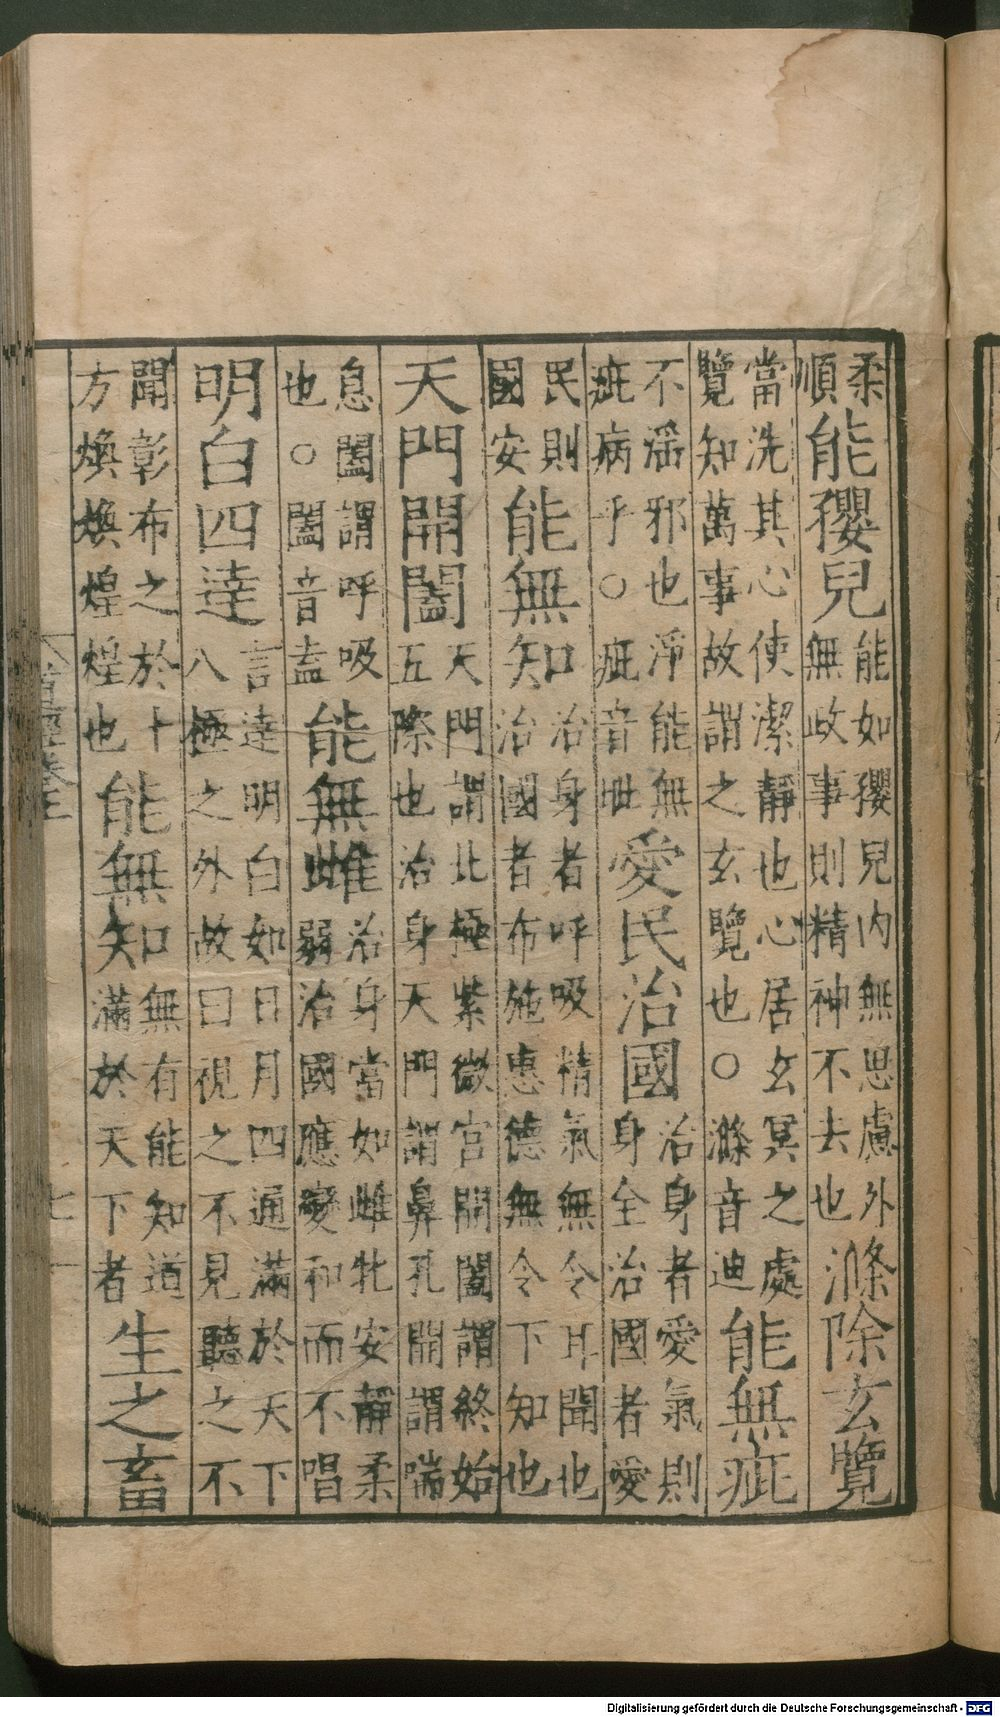 柔順能孾兒能如孾兒內無思慮外無政事則精神不去也滌除玄覽
當洗其心使潔靜也心居玄冥之處覽知萬事故謂之玄覽也○滌音迪能無疵
不滛邪也淨能無疵病乎○疵音毗愛民治國治身者愛氣則身全治國者愛
民則國安能無知治身者呼吸精氣無令耳聞也治國者布施惠德無令下知也
天門開闔天門謂北極紫微宮開闔謂終始五際也治身天門謂鼻孔開謂喘
息闔謂呼吸也○闔音盍能無雌治身當如雌牝安靜柔弱治國應變和而不唱
明白四達言達明白如日月四通滿於天下八極之外故曰視之不見聽之不
聞彰布之於十方煥煥煌煌也能無知無有能知道滿於天下者生之畜
七
Digitalisierung gefördert durch die Deutsche Forschungsgemeinschaft - DFG